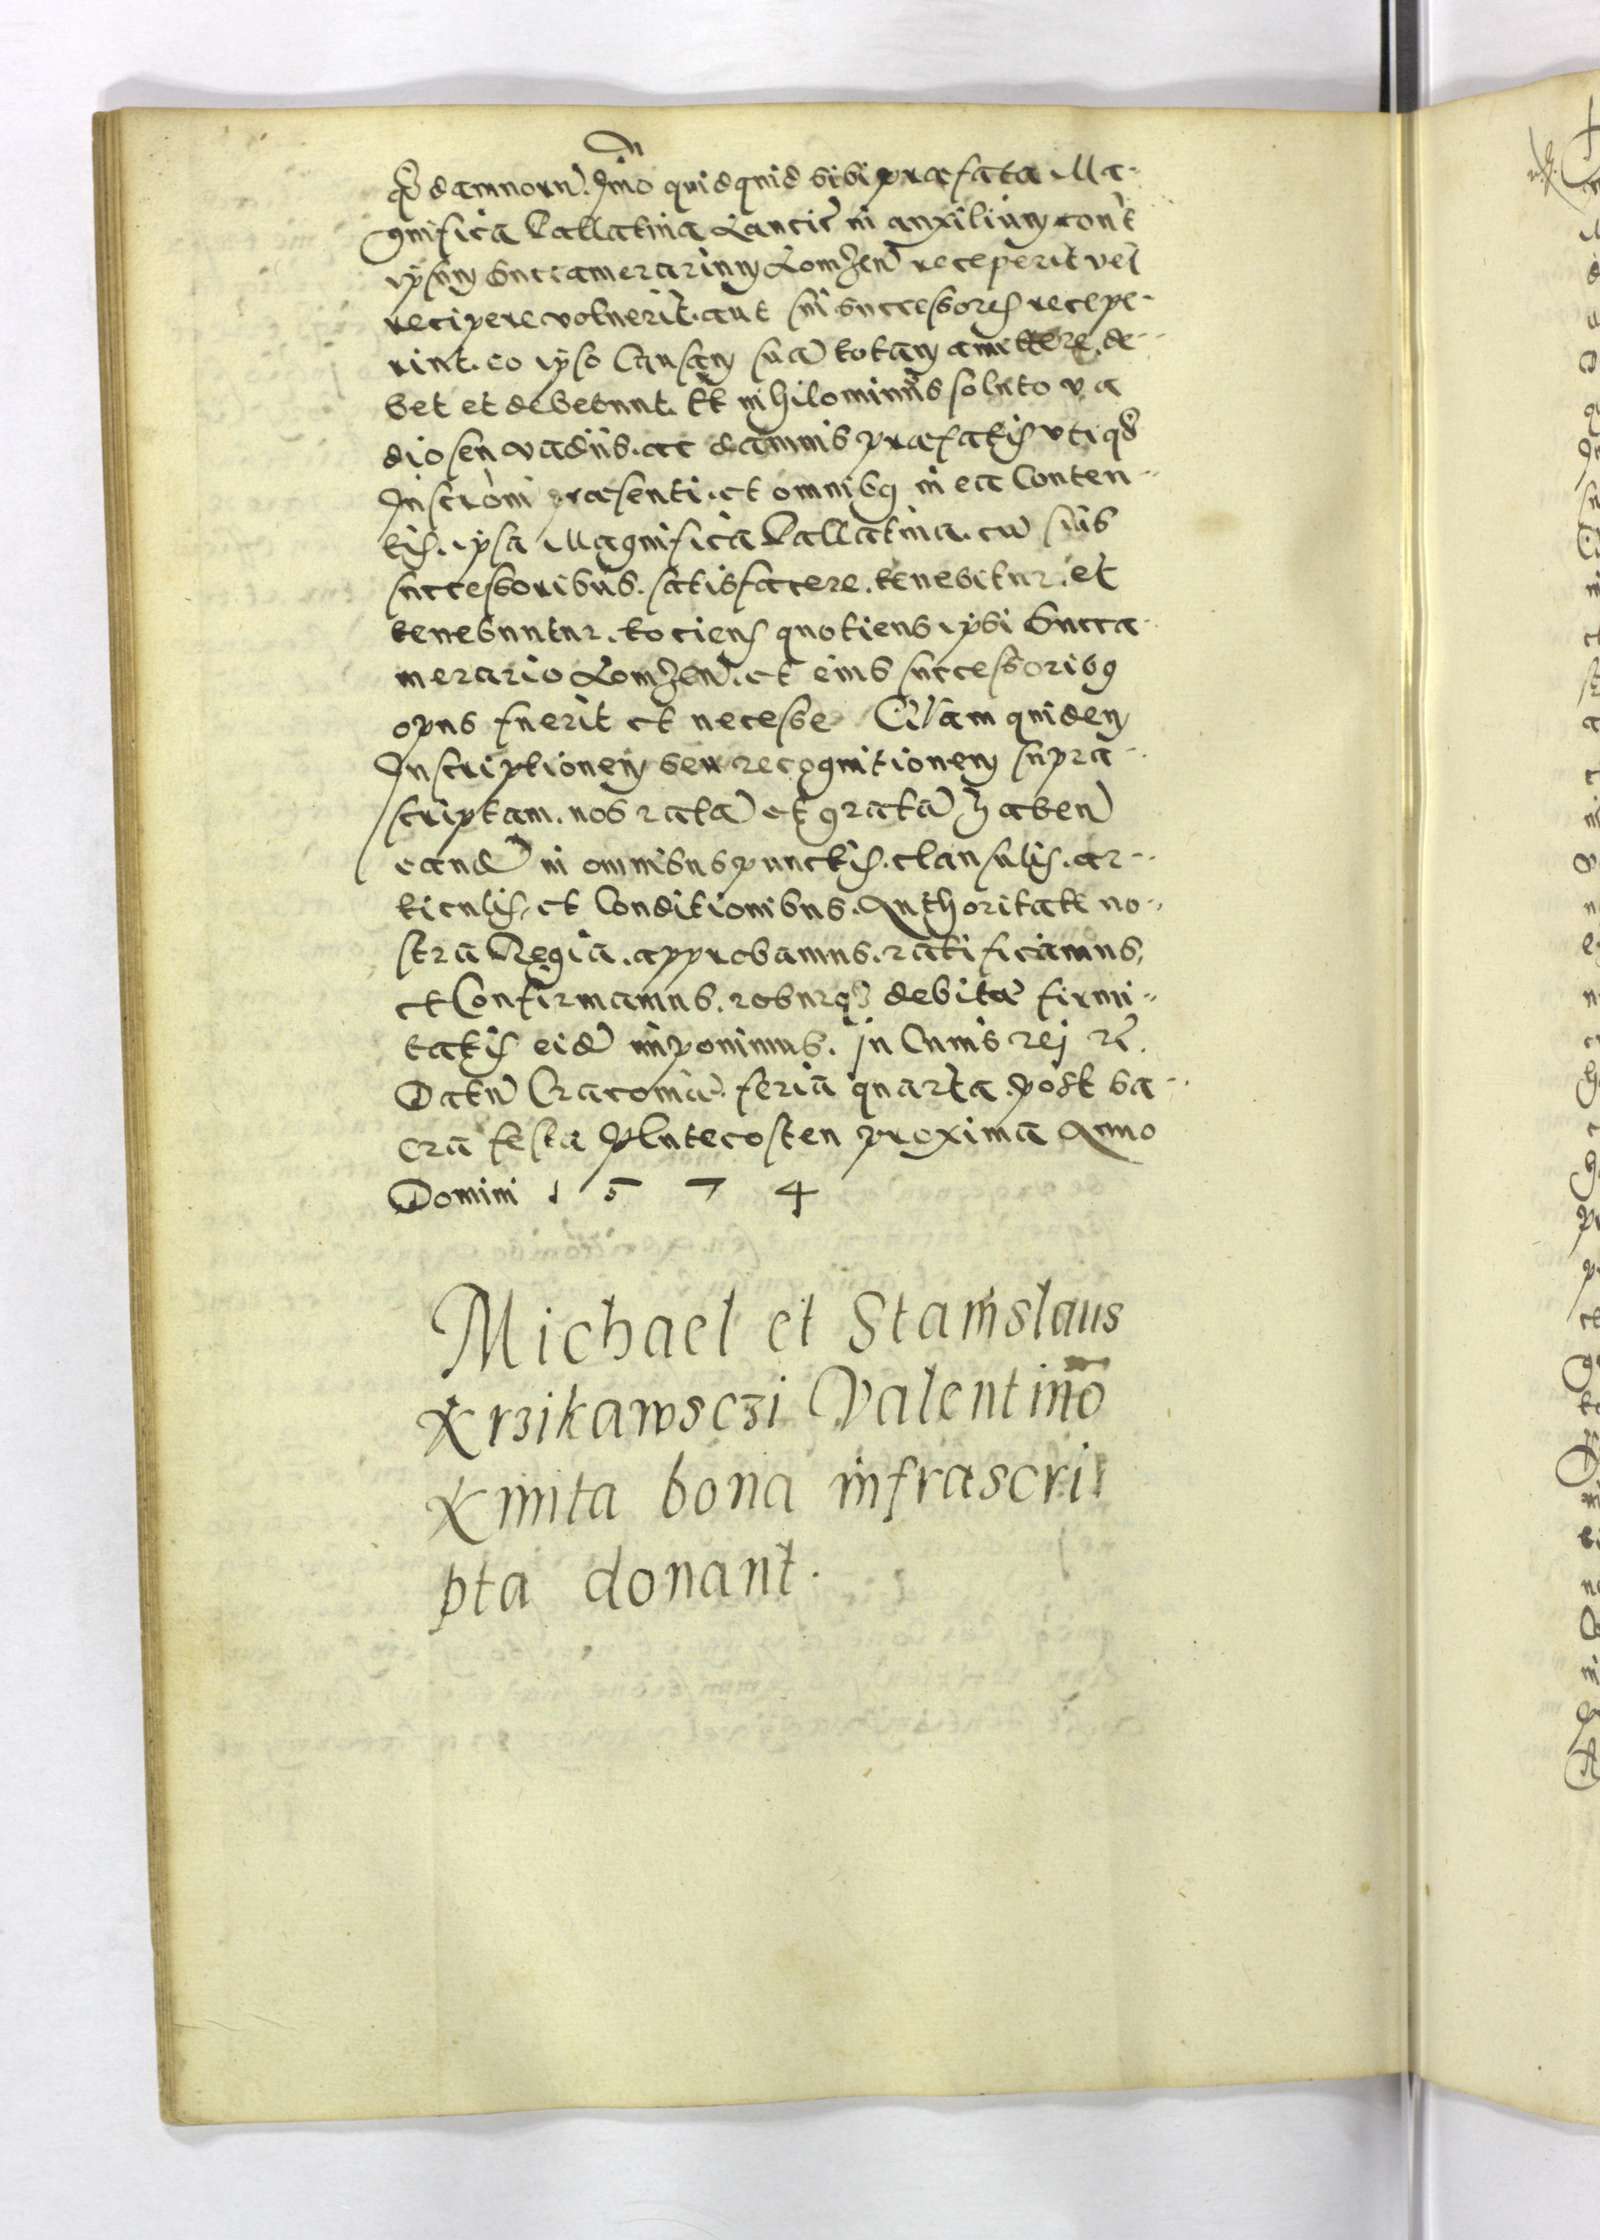 damnorũ. Imo quidquid sibi præfata Ma-
gnifica Pallatina Lancič in auxilium cont̃
ipsum Succamerarium Lomzeñ receperit vel
recipere voluerit. aut sui successores recepe-
rint. eo ipso Causam suã totam amittere de-
bet et debebunt. Et nihilominus soluto va
dio seu vadiis. ac damnis præfatis vti qd
Inscrõni præsenti. et omnibq in ea Conten-
tis. ipsa Magnifica Pallatina. cũ suis
successoribus. satisfacere. tenebitur. et
tenebuntur. tociens quotiens ipsi Succa
merario Lomzeñ. et eius successoribq
opus fuerit et necesse Quam quidem
Inscriptionem seu recognitionem supra-
scriptam. nos ratã et gratã habeñ
eandẽ in omnibus punctis. clausulis. ar-
ticulis, et Conditionibus. Authoritate no-
stra Regia. approbamus. ratificamus,
et Confirmamus. roburq3 debitæ firmi-
tatis eidẽ imponimus. In Cuius rej rẽ.
Datũ Cracoviæ. feria quarta post sa-
cra festa Pentecosten proxima Anno
Domini 1 5 7 4
Michael et Stanislaus
Krzikawsczi Valentino
Kmita bona infrascri
pta donant.